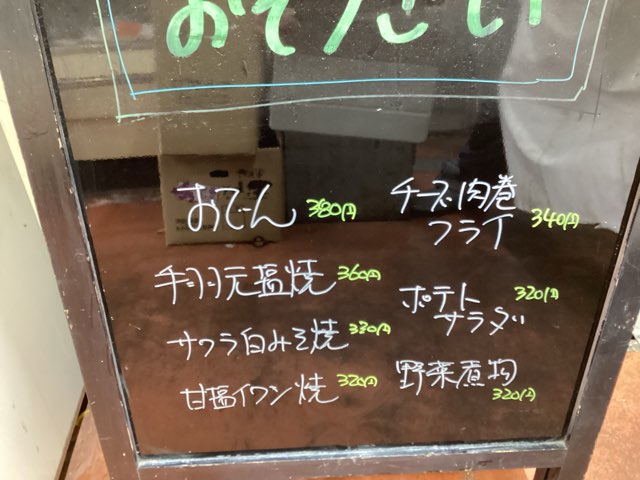 おそうざい
おでん 380円
手羽元塩焼 360円
サワラ白みそ焼 380円
甘塩イワシ焼 320円
チーズ肉巻
フライ 340円
ポテト
サラダ 320円
野菜煮物
320円